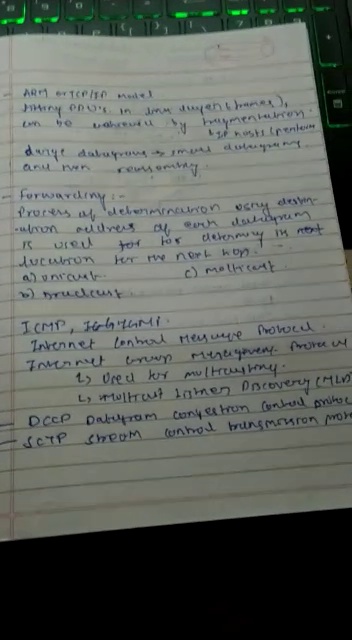 - ARM or TCP/IP model
PDU's in link layer (frames),
can be achieved by fragmentation.
IP hosts
large datagrams → small datagrams
and then reassembly.
- Forwarding :-
Process of determination using destin-
-ation address of each datagram
is used for to determine its next
location for the next hop.
a) unicast. c) multicast.
b) broadcast.
ICMP,
Internet Control Message Protocol.
Internet Group Management Protocol
↳ Used for multicasting.
↳ Multicast Listener Discovery (MLD)
- DCCP Datagram congestion control protoc
- SCTP Stream control transmission proto